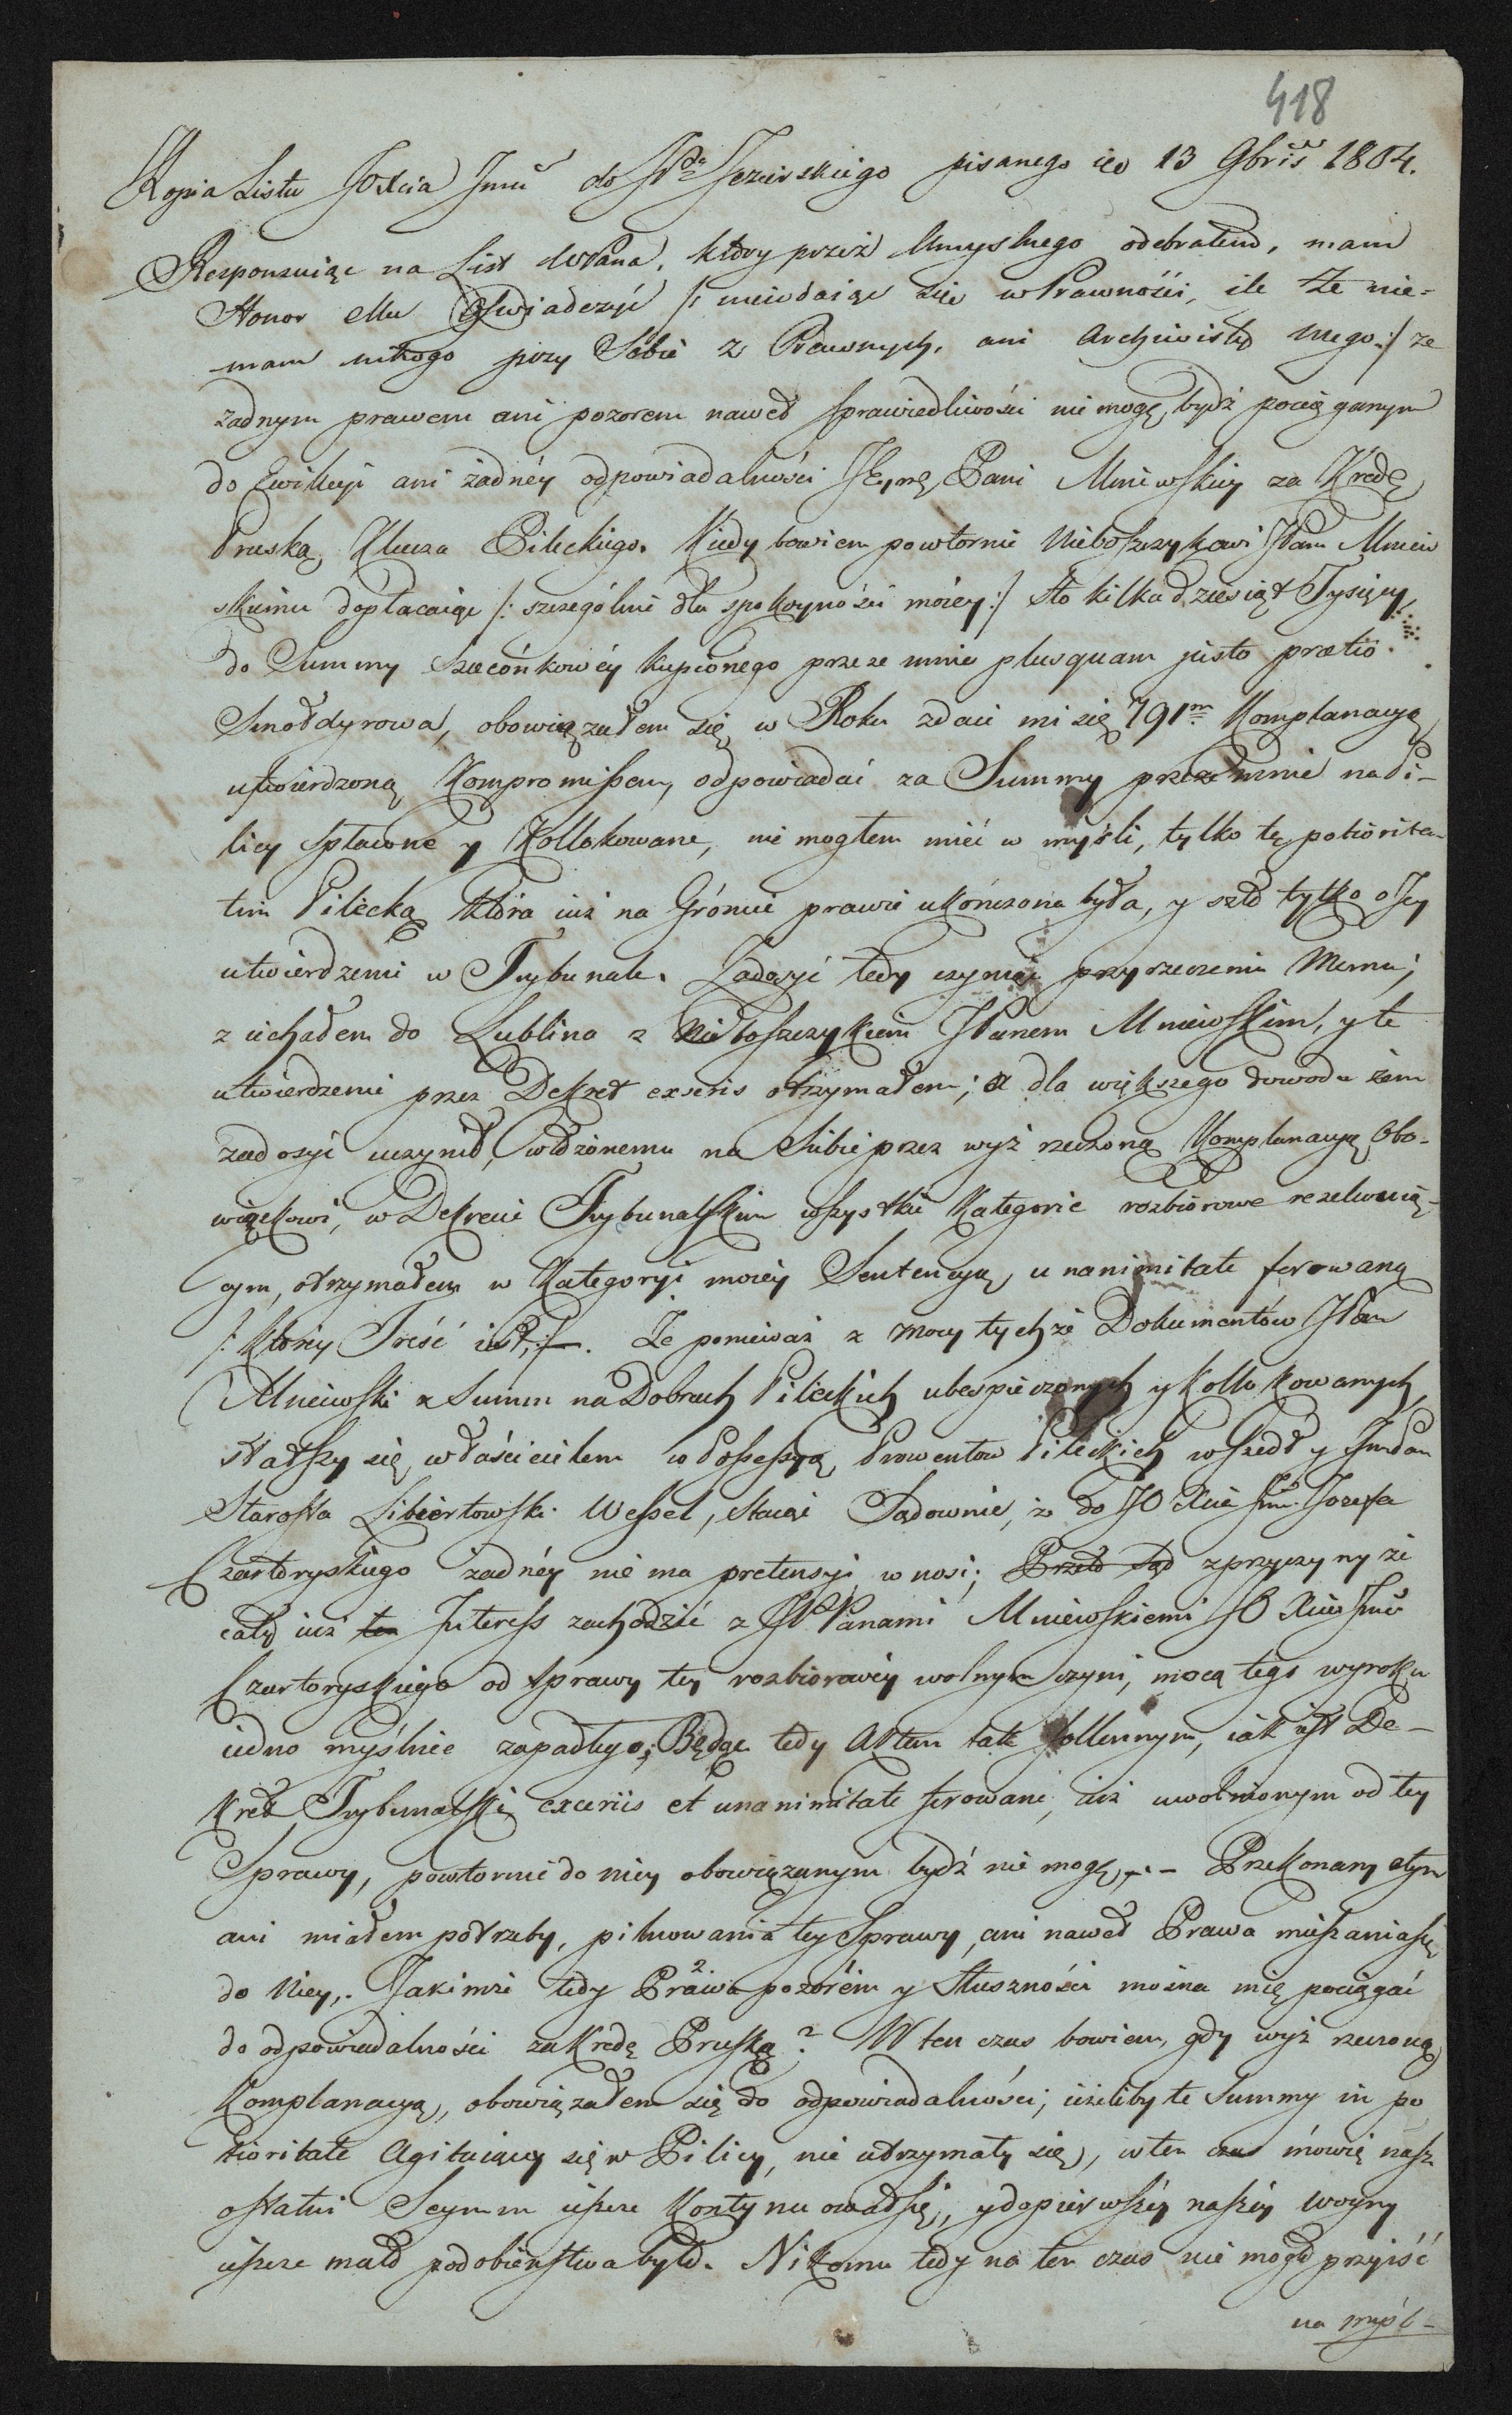 418
Kopia Listu JOXcia Jmci do JPa Jezierskiego pisanego ied 13 9bris 1804.
Responsuiąc na List WPana, który przez Umyslnego odebrałem, mam
Honor Mu Oswiadczyć /: niewdaiąc się w Prawności, ile że nie-
mam nikogo przy Sobie z Prawnych, ani Archiwistę mego :/ że
żadnym prawem ani pozorem nawet sprawiedliwości nie mogę bydź pociąganym
do Ewikcyi ani żadnéy odpowiadalności JEymę Pani Mniewskiey za Kredę
Pruską Klucza Pileckiego. Kiedy bowiem powtornie Nieboszczykowi JPanu Mniew
skiemu dopłacaiąc /: szczególnie dla spokoyności moiéy :/ sto kilkadziesiąt Tysięcy
do Summy szacónkowéy kupionego przeze mnie plusquam justo pretio
Smołdyrowa, obowiązałem się w Roku zdaie mi się 791m Komplanacyą
utwierdzoną Kompromissem, odpowiadać za Summy przezemnie na Pi-
licy spławne y Kollokowane, nie mogłem mieć w myśli, tylko tę potiorita-
tem Pilecką która iuż na Gróncie prawie ukończona była, y szło tylko o Jey
utwierdzenie w Trybunale. Zadosyć tedy czyniąc przyrzeczeniu Memu;
ziechałem do Lublina z Nieboszczykiem JPanem Mniewskim, y te
utwierdzenie przez Dekret exseriis otrzymałem; a dla większego dowodu żem
zadosyć uczynił, włożonemu na Siebie przez wyż rzeczoną Komplanacyą Obo-
wiązkowi, w Dekrecie Trybunalskim wszystkie Kategorie rozbiórowe rezolwuią-
cym, otrzymałem w Kategoryi moiéy Sentencyą, unanimitate ferowaną
/: Któréy Treść iest :/. Że ponieważ z Mocy tychże Dokumentów JPan
Mniewski z Summ na Dobrach Pileckich ubespieczonych y Kollokowanych
stałszy się właścicielem w Possessyą Prowentow Pileckich wszedł y JmPan
Starosta Libiertowski Wessel, staiąc Sądownie, że do JO Xcia Jmci Jozefa
Czartoryskiego żadnéy nie ma pretensyi wnosi; Przeto Sąd z przyczyny że
cały iuż ten Interess zachodzić z JW Panami Mniewskiemi JO Xcia Jmci
Czartoryskiego od sprawy tey rozbiorowéy wolnym czyni, mocą tego wyroku
iedno myślnie zapadłego; Będąc tedy Aktem tak sollennym, iak iest De-
kret Trybunalski exceriis et unanimitate ferowane, iuż uwolnionym od tey
Sprawy, powtornie do niey obowiązanym bydź nie mogę. – Przekonany o tym
ani miałem potrzeby, pilnowania tey Sprawy, ani nawet Prawa mieszania się
do Niey. Jakimże tedy Prawa pozorém y Słuszności można mię pociągać
do odpowiadalności za Kredę Pruską? W ten czas bowiem, gdy wyż rzeczoną
Komplanacyą, obowiązałem się do odpowiadalności; ieżeliby te Summy in po
tioritate Agituiącey się w Pilicy, nie utrzymały się, w ten czas mówię nasz
ostatni Seymm ieszcze kontynuował się, y do pierwszéy naszéy woyny
ieszcze mało podobieństwa było. Nikomu tedy na ten czas nie mogło przyiść
na myśl-